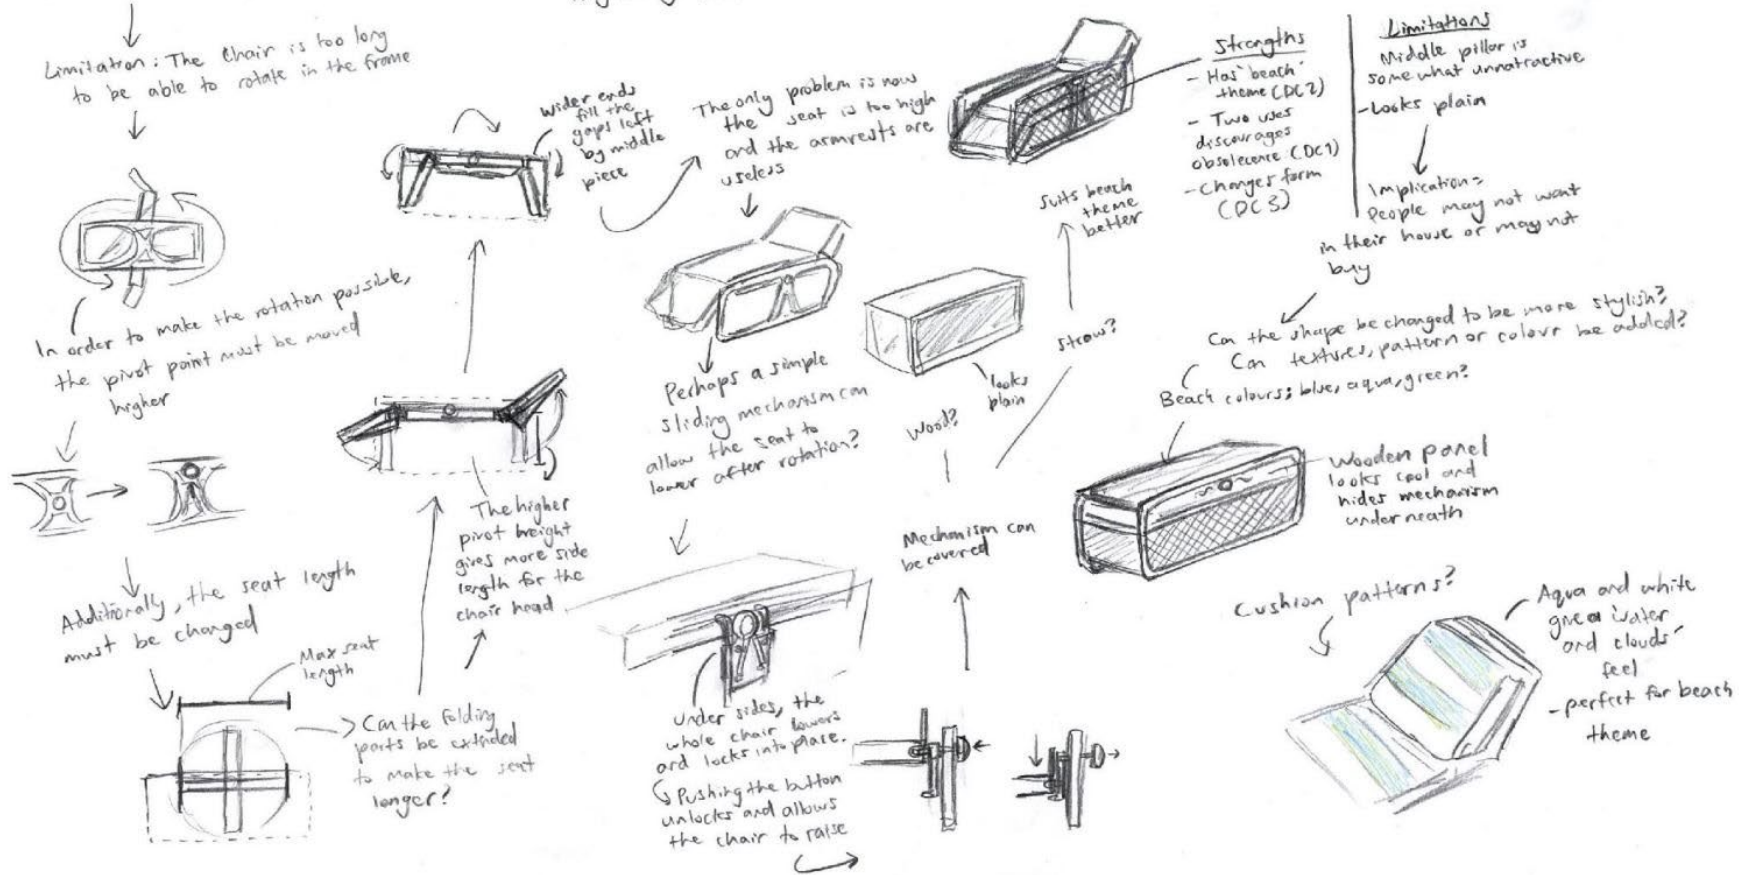 Limitation: The Chair is too long
to be able to rotate in the frame
In order to make the rotation possible,
the pivot point must be moved
higher
Additionally, the seat length
must be changed
Max seat
length
Can the folding
parts be extended
to make the seat
longer?
The higher
pivot height
gives more side
length for the
chair head
wider ends
fill the
gaps left
by middle
piece
The only problem is now
the seat is too high
and the armrests are
useless
Perhaps a simple
sliding mechanism can
allow the seat to
lower after rotation?
Under sides, the
whole chair lowers
and locks into place.
Pushing the button
unlocks and allows
the chair to raise
Mechanism can
be covered
Wood?
looks
plain
Straw?
Suits beach
theme
better
Strengths
- Has 'beach'
theme (DC2)
- Two uses
discourages
obsolecence (DC1)
- Changes form
(DC3)
Limitations
Middle pillar is
some what unnatractive
-Looks plain
Implication:
People may not want
in their house or may not
buy
Can the shape be changed to be more stylish?
Can textures, pattern or colour be added?
Beach colours; blue, aqua, green?
Wooden panel
looks cool and
hides mechanism
underneath
Cushion patterns?
Aqua and white
give a 'water
and clouds'
feel
- perfect for beach
theme